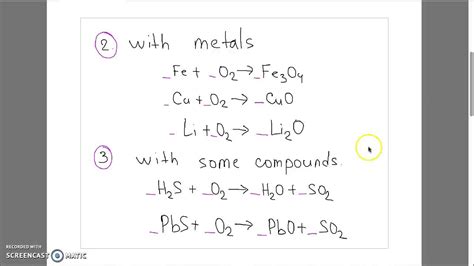 ② with metals
_Fe + _O₂→_Fe₃O₄
_Cu + _O₂→_CuO
_Li + _O₂→_Li₂O
③ with some compounds.
_H₂S + _O₂→_H₂O + _SO₂
_PbS + _O₂→_PbO + _SO₂
RECORDED WITH
SCREENCAST MATIC